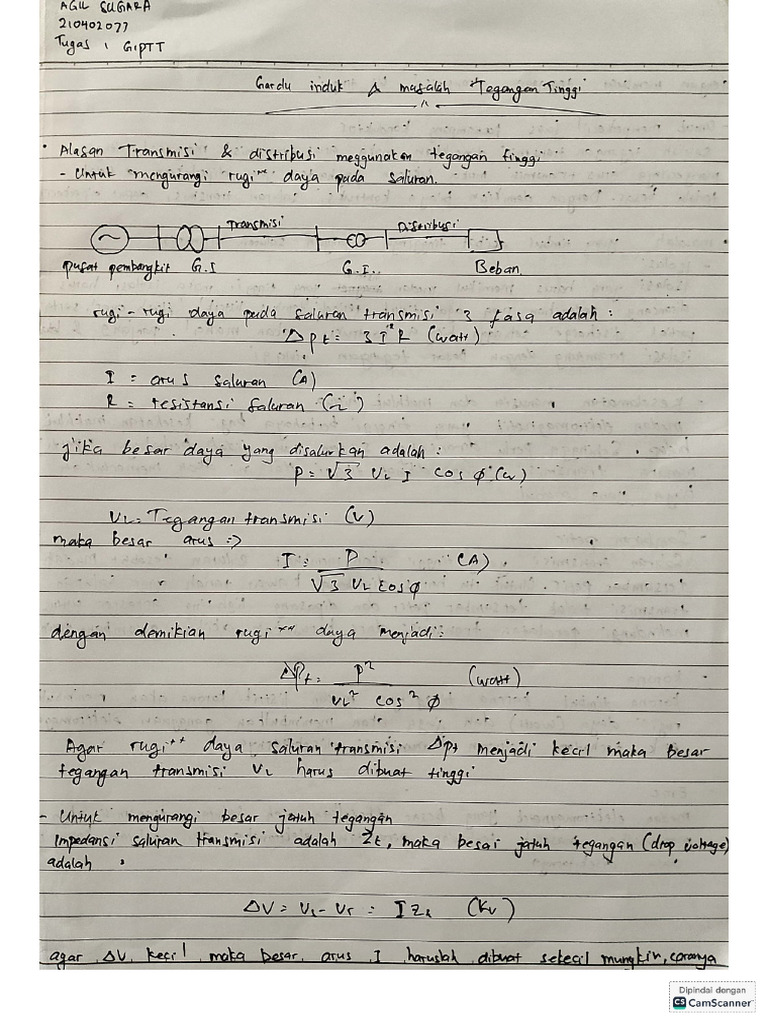 AGIL SUGARA
210402077
Tugas 1 GIPTT
Gardu induk & masalah Tegangan Tinggi
• Alasan Transmisi & distribusi meggunakan tegangan tinggi
- Untuk mengurangi rugi** daya pada saluran.
Transmisi Distribusi
pusat pembangkit G.I G.I.. Beban
rugi-rugi daya pada saluran transmisi 3 fasa adalah :
Δpt = 3 I²R (watt)
I = arus saluran (A)
R = resistansi saluran (Ω)
jika besar daya yang disalurkan adalah :
P = √3 VL I cos φ (w)
VL = Tegangan transmisi (V)
maka besar arus =>
I = P / √3 VL cos φ (A)
dengan demikian rugi** daya menjadi:
ΔPt = P² / VL² cos² φ (watt)
Agar rugi** daya saluran transmisi Δpt menjadi kecil maka besar
tegangan transmisi VL harus dibuat tinggi
- Untuk mengurangi besar jatuh tegangan
Impedansi saluran transmisi adalah Zt, maka besar jatuh tegangan (drop voltage)
adalah
ΔV = Vs - Vr = I Zt (Kv)
agar ΔV kecil maka besar arus I haruslah dibuat sekecil mungkin, caranya
Dipindai dengan
CS CamScanner